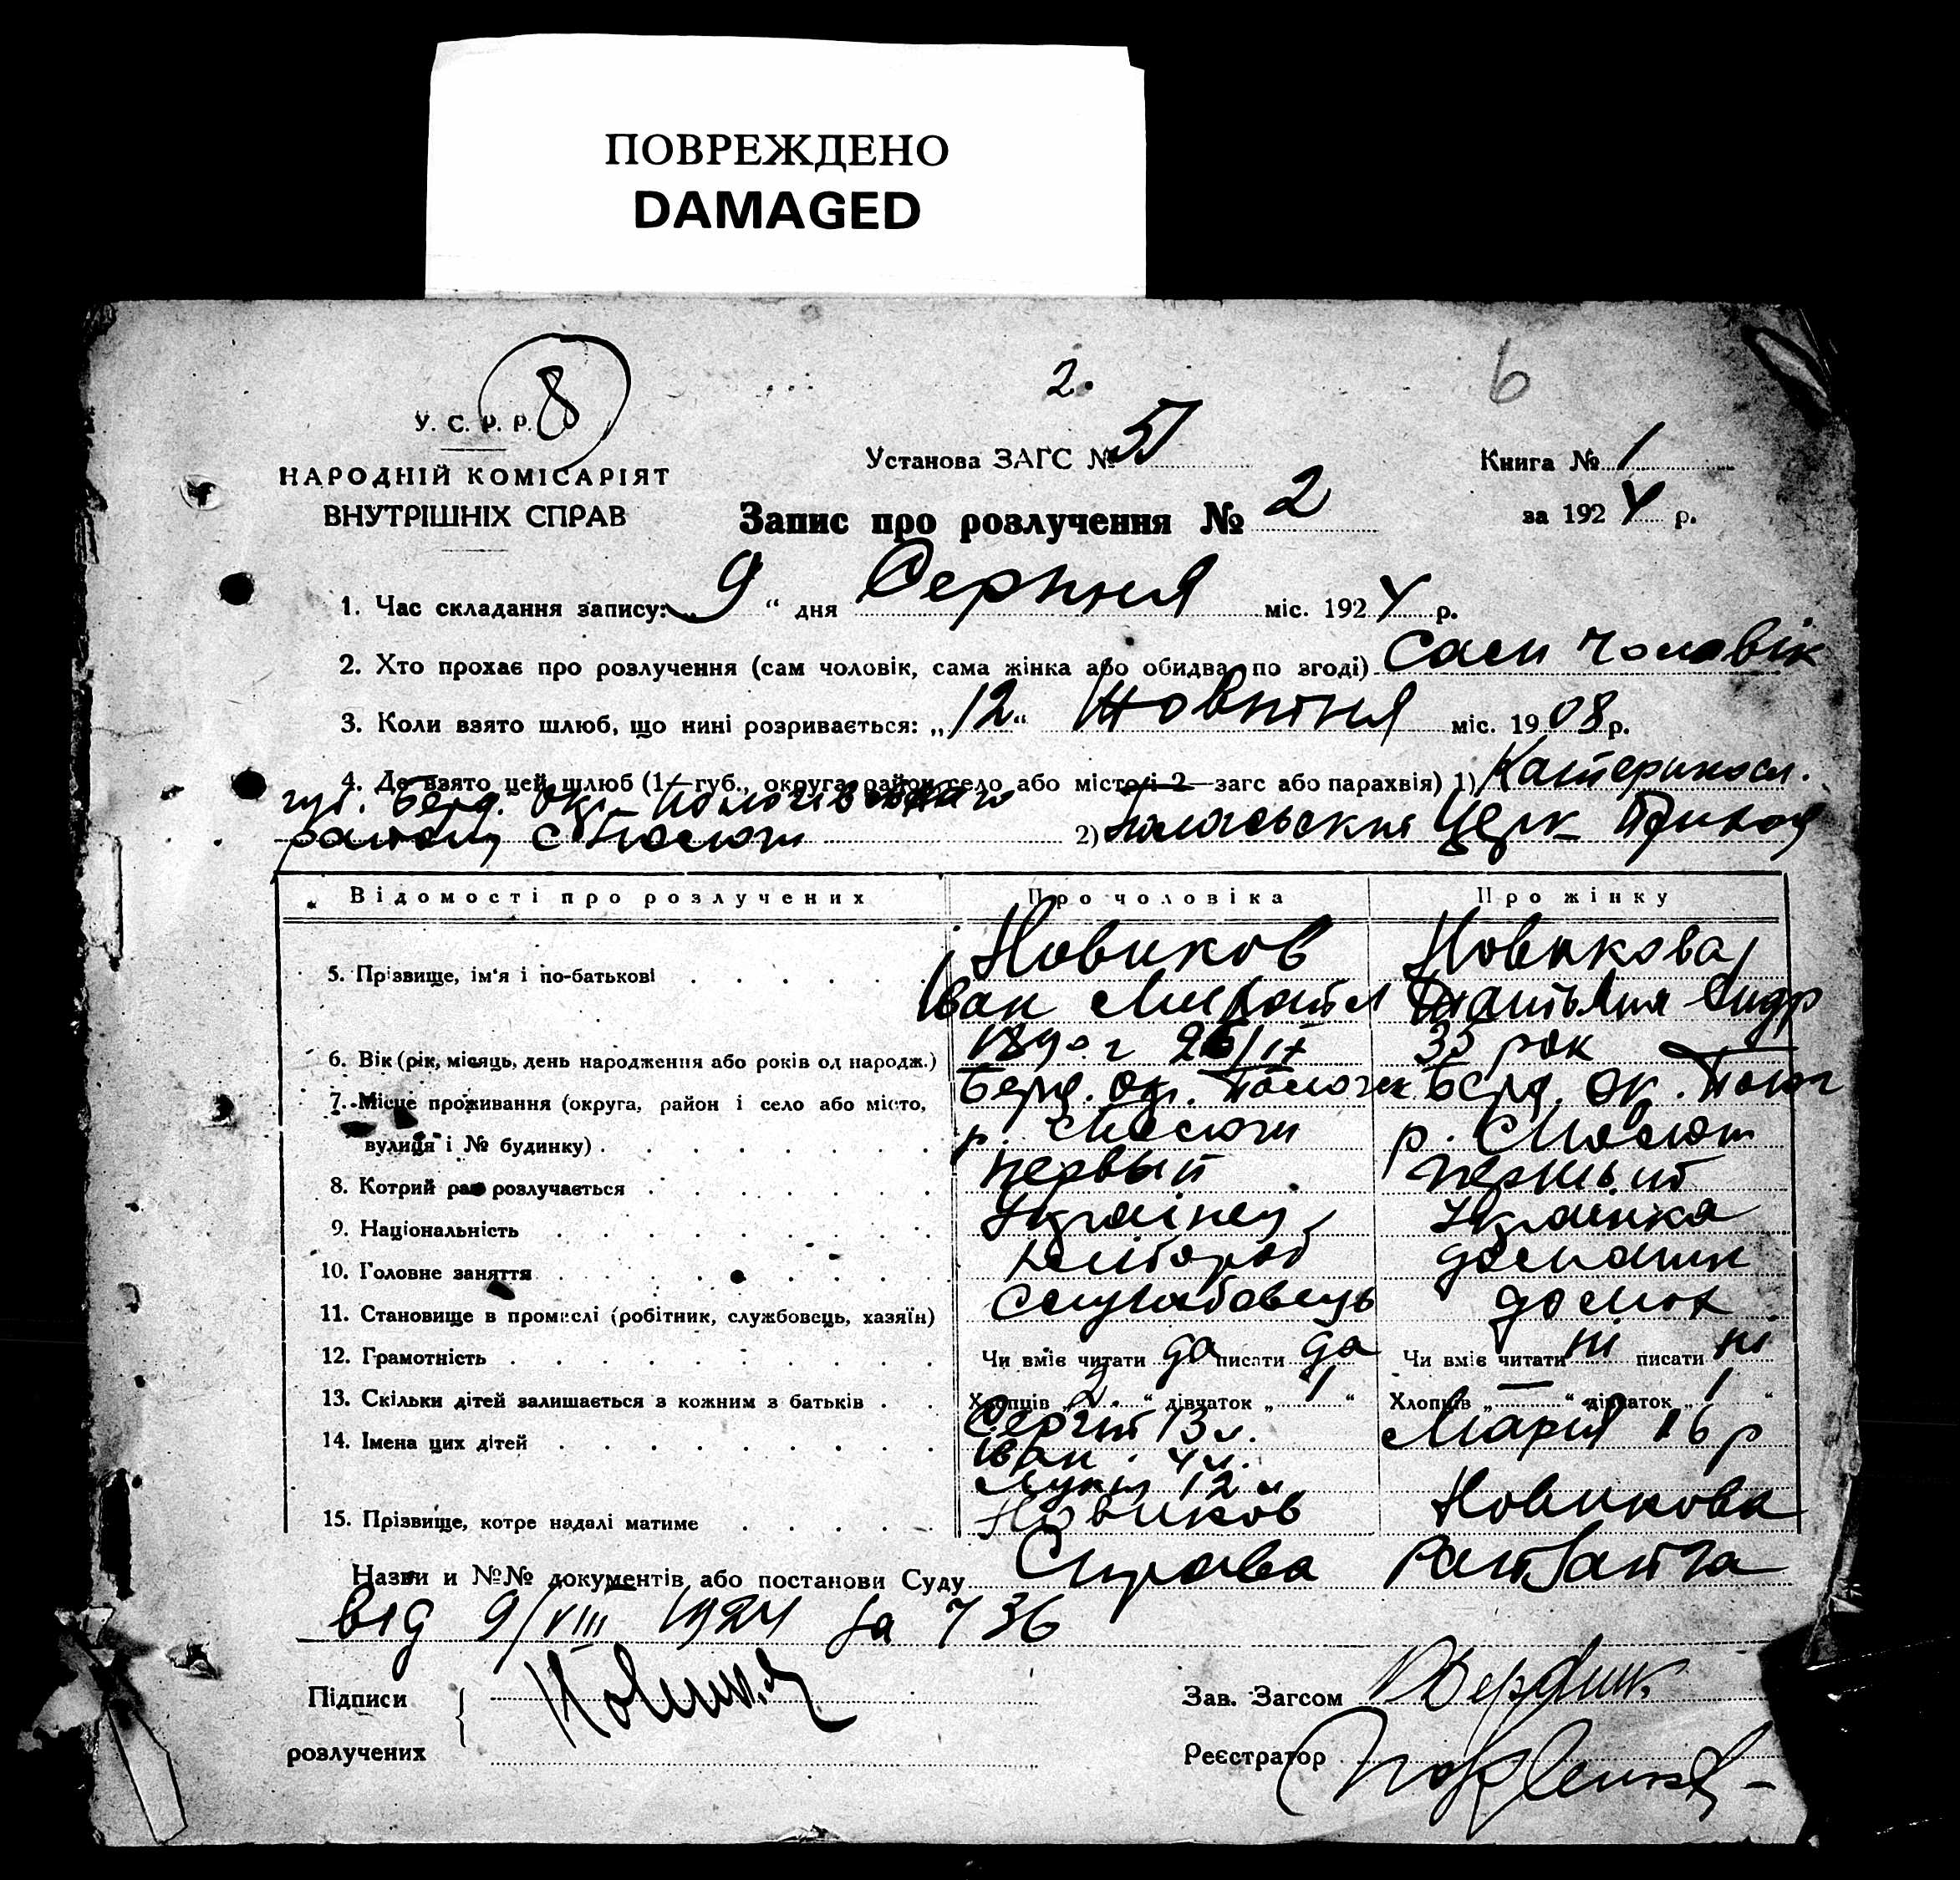 ПОВРЕЖДЕНО
DAMAGED
8
2.
6
У. С. Р. Р.
Установа ЗАГС №
Книга № 1
НАРОДНІЙ КОМІСАРІЯТ
ВНУТРІШНІХ СПРАВ
Запис про розлучення № 2
за 1924 р.
1. Час складання запису: „ 9 “ дня Серпня міс. 1924 р.
2. Хто прохає про розлучення (сам чоловік, сама жінка або обидва по згоді) Сам чоловік
3. Коли взято шлюб, що нині розривається: „12“ Жовтня міс. 1908 р.
4. Де взято цей шлюб (1—губ., округа, район, село або місто і 2—загс або парахвія) 1) Катериносл.
губ. Берд. Окр.
району с 2) Церк
Відомості про розлучених Про чоловіка Про жінку
5. Прізвище, ім‘я і по-батькові Новиков Новикова
Іван Татьяна
6. Вік (рік, місяць, день народження або років од народж.) 1890 г 26/IX 35 рок
7. Місце проживання (округа, район і село або місто, Берд. Ок. Полог Берд. Ок. Полог
вулиця і № будинку) р. р.
8. Котрий раз розлучається первый перший
9. Національність Українец Українка
10. Головне заняття
11. Становище в промислі (робітник, службовець, хазяїн) Службовець
12. Грамотність Чи вміє читати да писати да Чи вміє читати ні писати ні
13. Скільки дітей залишається з кожним з батьків Хлопців „ 2 “ дівчаток „ 1 “ Хлопців „ — “ дівчаток „ 1 “
14. Імена цих дітей Сергій 13 л. Мария 16 р
Іван 4 л.
12 л
15. Прізвище, котре надалі матиме Новиков Новикова
Назви и №№ документів або постанови Суду Справа
від 9/VIII 1924 за 736
Підписи Зав. Загсом
розлучених Реєстратор